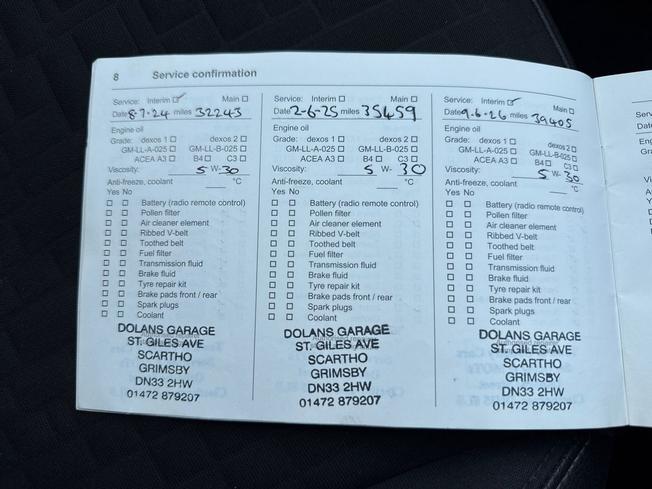 8 Service confirmation
Service: Interim ☑ Main ☐
Date 8-7-24 miles 32243
Engine oil
Grade: dexos 1 ☐ dexos 2 ☐
GM-LL-A-025 ☐ GM-LL-B-025 ☐
ACEA A3 ☐ B4 ☐ C3 ☐
Viscosity: 5 W-30
Anti-freeze, coolant °C
Yes No
☐ ☐ Battery (radio remote control)
☐ ☐ Pollen filter
☐ ☐ Air cleaner element
☐ ☐ Ribbed V-belt
☐ ☐ Toothed belt
☐ ☐ Fuel filter
☐ ☐ Transmission fluid
☐ ☐ Brake fluid
☐ ☐ Tyre repair kit
☐ ☐ Brake pads front / rear
☐ ☐ Spark plugs
☐ ☐ Coolant
DOLANS GARAGE
ST. GILES AVE
SCARTHO
GRIMSBY
DN33 2HW
01472 879207
Service: Interim ☐ Main ☐
Date 2-6-25 miles 35459
Engine oil
Grade: dexos 1 ☐ dexos 2 ☐
GM-LL-A-025 ☐ GM-LL-B-025 ☐
ACEA A3 ☐ B4 ☐ C3 ☐
Viscosity: 5 W-30
Anti-freeze, coolant °C
Yes No
☐ ☐ Battery (radio remote control)
☐ ☐ Pollen filter
☐ ☐ Air cleaner element
☐ ☐ Ribbed V-belt
☐ ☐ Toothed belt
☐ ☐ Fuel filter
☐ ☐ Transmission fluid
☐ ☐ Brake fluid
☐ ☐ Tyre repair kit
☐ ☐ Brake pads front / rear
☐ ☐ Spark plugs
☐ ☐ Coolant
DOLANS GARAGE
ST. GILES AVE
SCARTHO
GRIMSBY
DN33 2HW
01472 879207
Service: Interim ☑ Main ☐
Date 9-6-26 miles 39405
Engine oil
Grade: dexos 1 ☐ dexos 2 ☐
GM-LL-A-025 ☐ GM-LL-B-025 ☐
ACEA A3 ☐ B4 ☐ C3 ☐
Viscosity: 5 W-30
Anti-freeze, coolant °C
Yes No
☐ ☐ Battery (radio remote control)
☐ ☐ Pollen filter
☐ ☐ Air cleaner element
☐ ☐ Ribbed V-belt
☐ ☐ Toothed belt
☐ ☐ Fuel filter
☐ ☐ Transmission fluid
☐ ☐ Brake fluid
☐ ☐ Tyre repair kit
☐ ☐ Brake pads front / rear
☐ ☐ Spark plugs
☐ ☐ Coolant
DOLANS GARAGE
ST. GILES AVE
SCARTHO
GRIMSBY
DN33 2HW
01472 879207